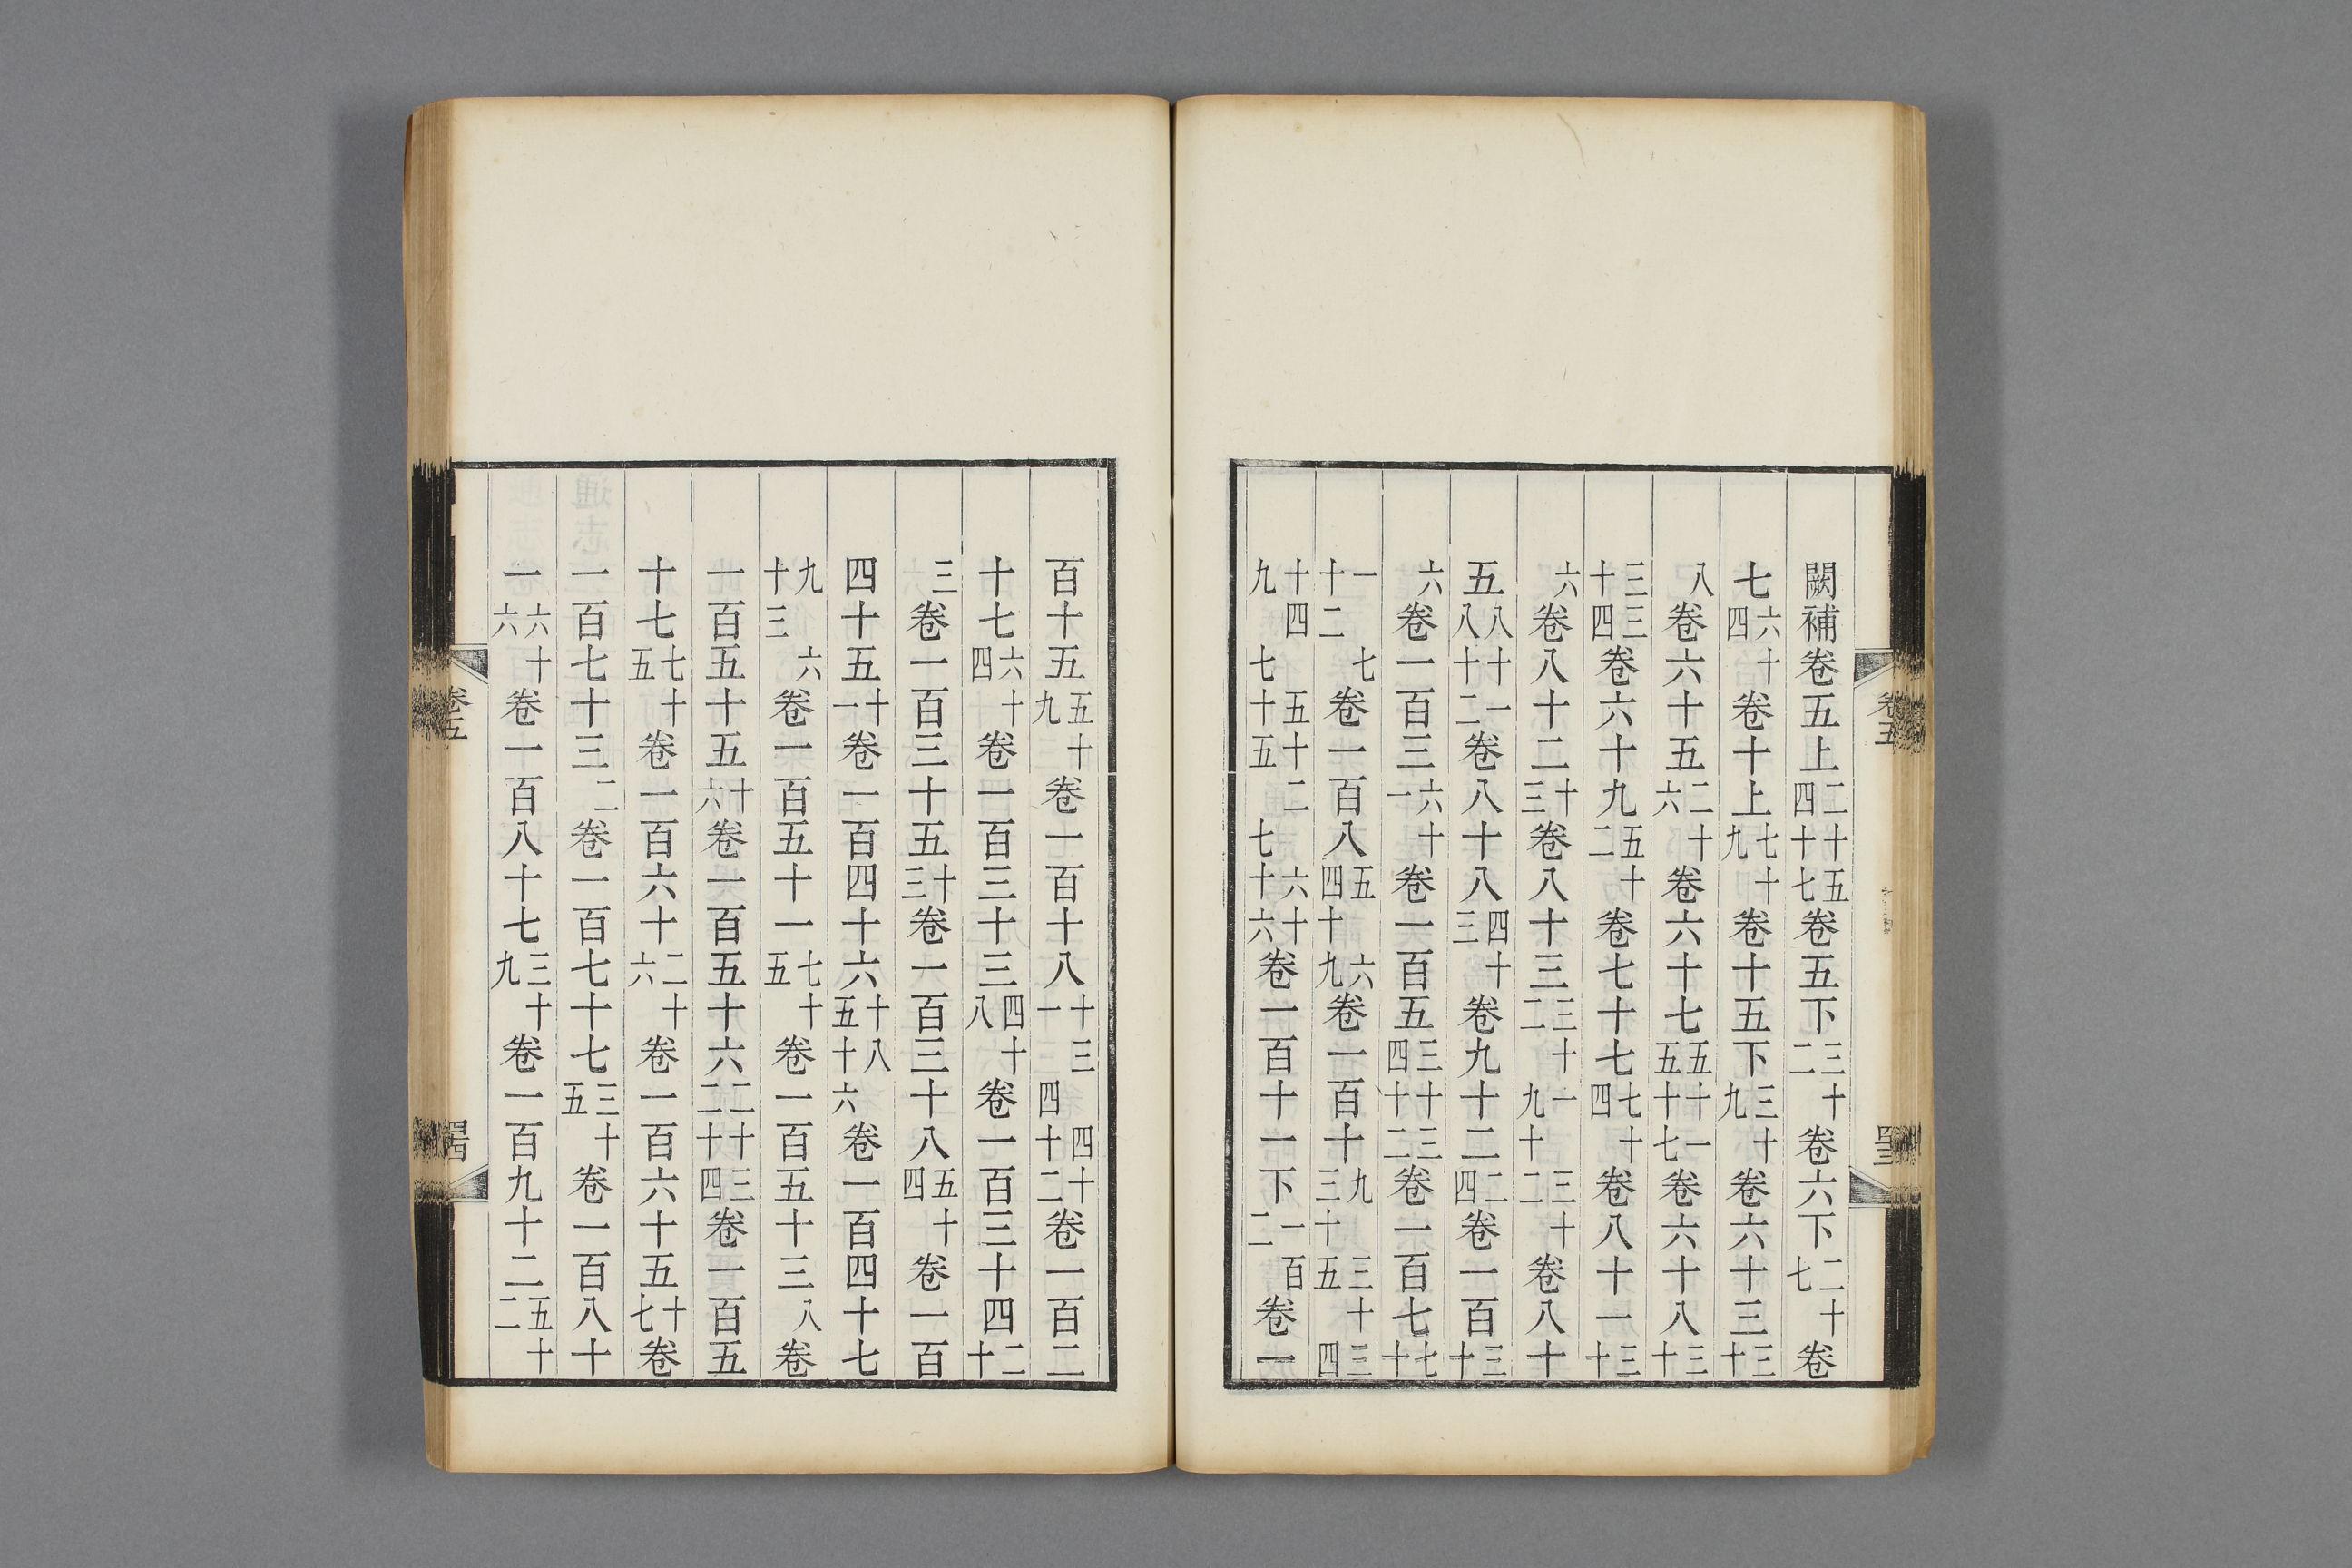 卷五
闕補卷五上二十五四十七卷五下三十二卷六下二十七卷
七六十四卷十上七十九卷十五下三十九卷六十三三十
八卷六十五二十六卷六十七五十一五十七卷六十八三十
三三十四卷六十九五十二卷七十七七十四卷八十一三十
六卷八十二十三卷八十三三十一三十二九十二卷八十
五八十一八十二卷八十八四十三卷九十二二四卷一百三十
六卷一百三六十一卷一百五三十三四十二卷一百七七十
一七十二卷一百八五六四十九卷一百十九三十三三十五四
十四五十二六十九七十五七十六卷一百十一下一百二卷一
百十五五十九卷一百十八十三四十一四十二卷一百二
十七六十四卷一百三十三四十八卷一百三十四二十
三卷一百三十五十三卷一百三十八五十四卷一百
四十五十一卷一百四十六十八五十六卷一百四十七
九六十三卷一百五十一七十五卷一百五十三八卷
一百五十五十六卷一百五十六二十三二十四卷一百五
十七七十五卷一百六十二十六卷一百六十五十七卷
一百七十三二卷一百七十七三十五卷一百八十
一六十六卷一百八十七三十九卷一百九十二五十二
卷五